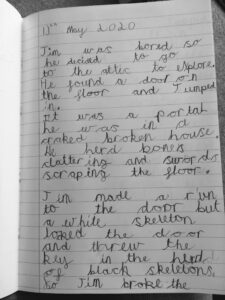 11th May 2020
Jim was bored so
he decided to go
to the attic to explore.
He found a door on
the floor and Jumped
in.
It was a portal
he was in a
craked broken house.
He herd bones
clattering and swords
scraping the floor.
Jim made a run
to the door but
a white skeleton
loked the door
and threw the
key in the herd
of black skeletons,
so Jim broke the